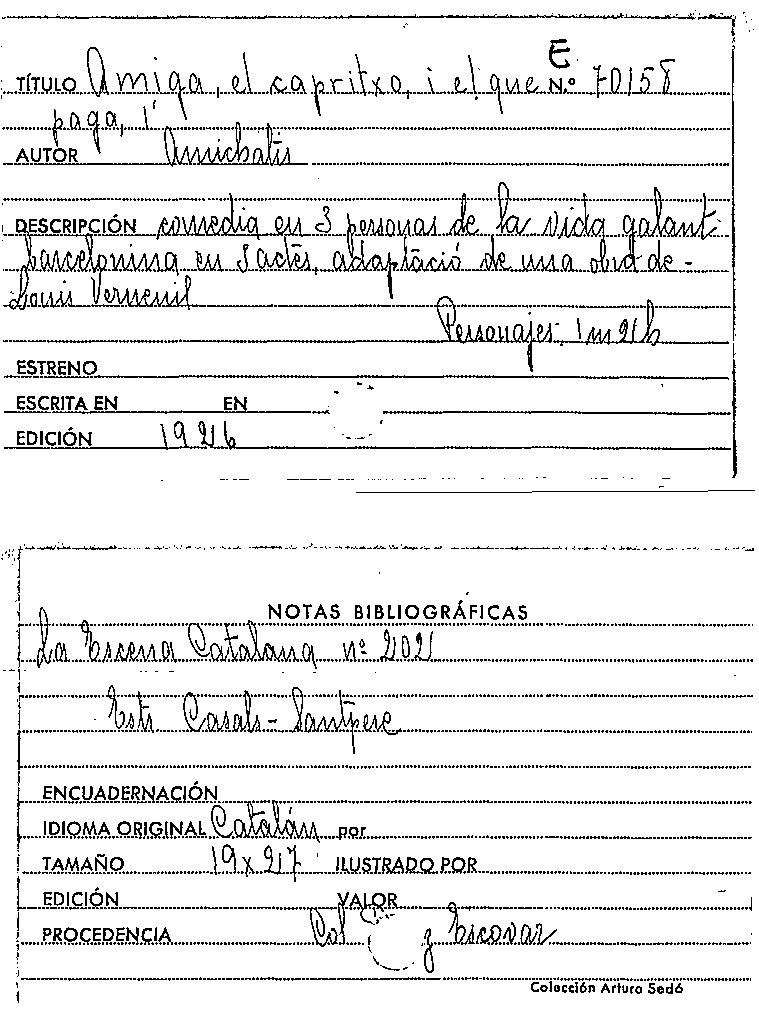 E
TÍTULO Amiga, el capritxo, i el que N.º 70158
paga, l'
AUTOR Amichatis
DESCRIPCIÓN comedia en 3 personas de la vida galant
barcelonina en 3 actes, adaptació de una obra de -
Louis Verneuil
Personajes: 1m 2h
ESTRENO
ESCRITA EN EN
EDICIÓN 1926
NOTAS BIBLIOGRÁFICAS
La Escena Catalana nº 202
Ests Casals - Santpere
ENCUADERNACIÓN
IDIOMA ORIGINAL Catalán por
TAMAÑO 19 x 27 ILUSTRADO POR
EDICIÓN VALOR
PROCEDENCIA Col y Escovar
Colección Arturo Sedó